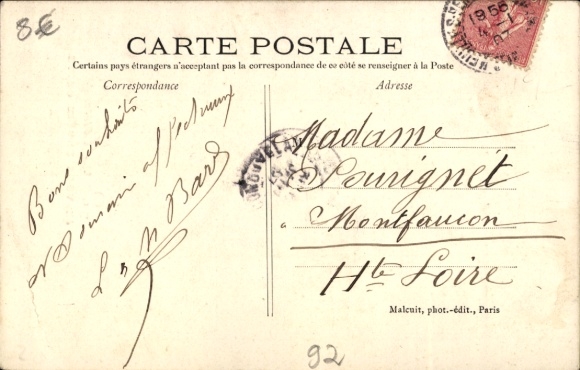 8 €
CARTE POSTALE
Certains pays étrangers n'acceptant pas la correspondance de ce côté se renseigner à la Poste
Correspondance
Adresse
Bons souhaits
affectueux
L N Bard
Madame
Sourignet
Montfaucon
Hte Loire
Malcuit, phot.-édit., Paris
92